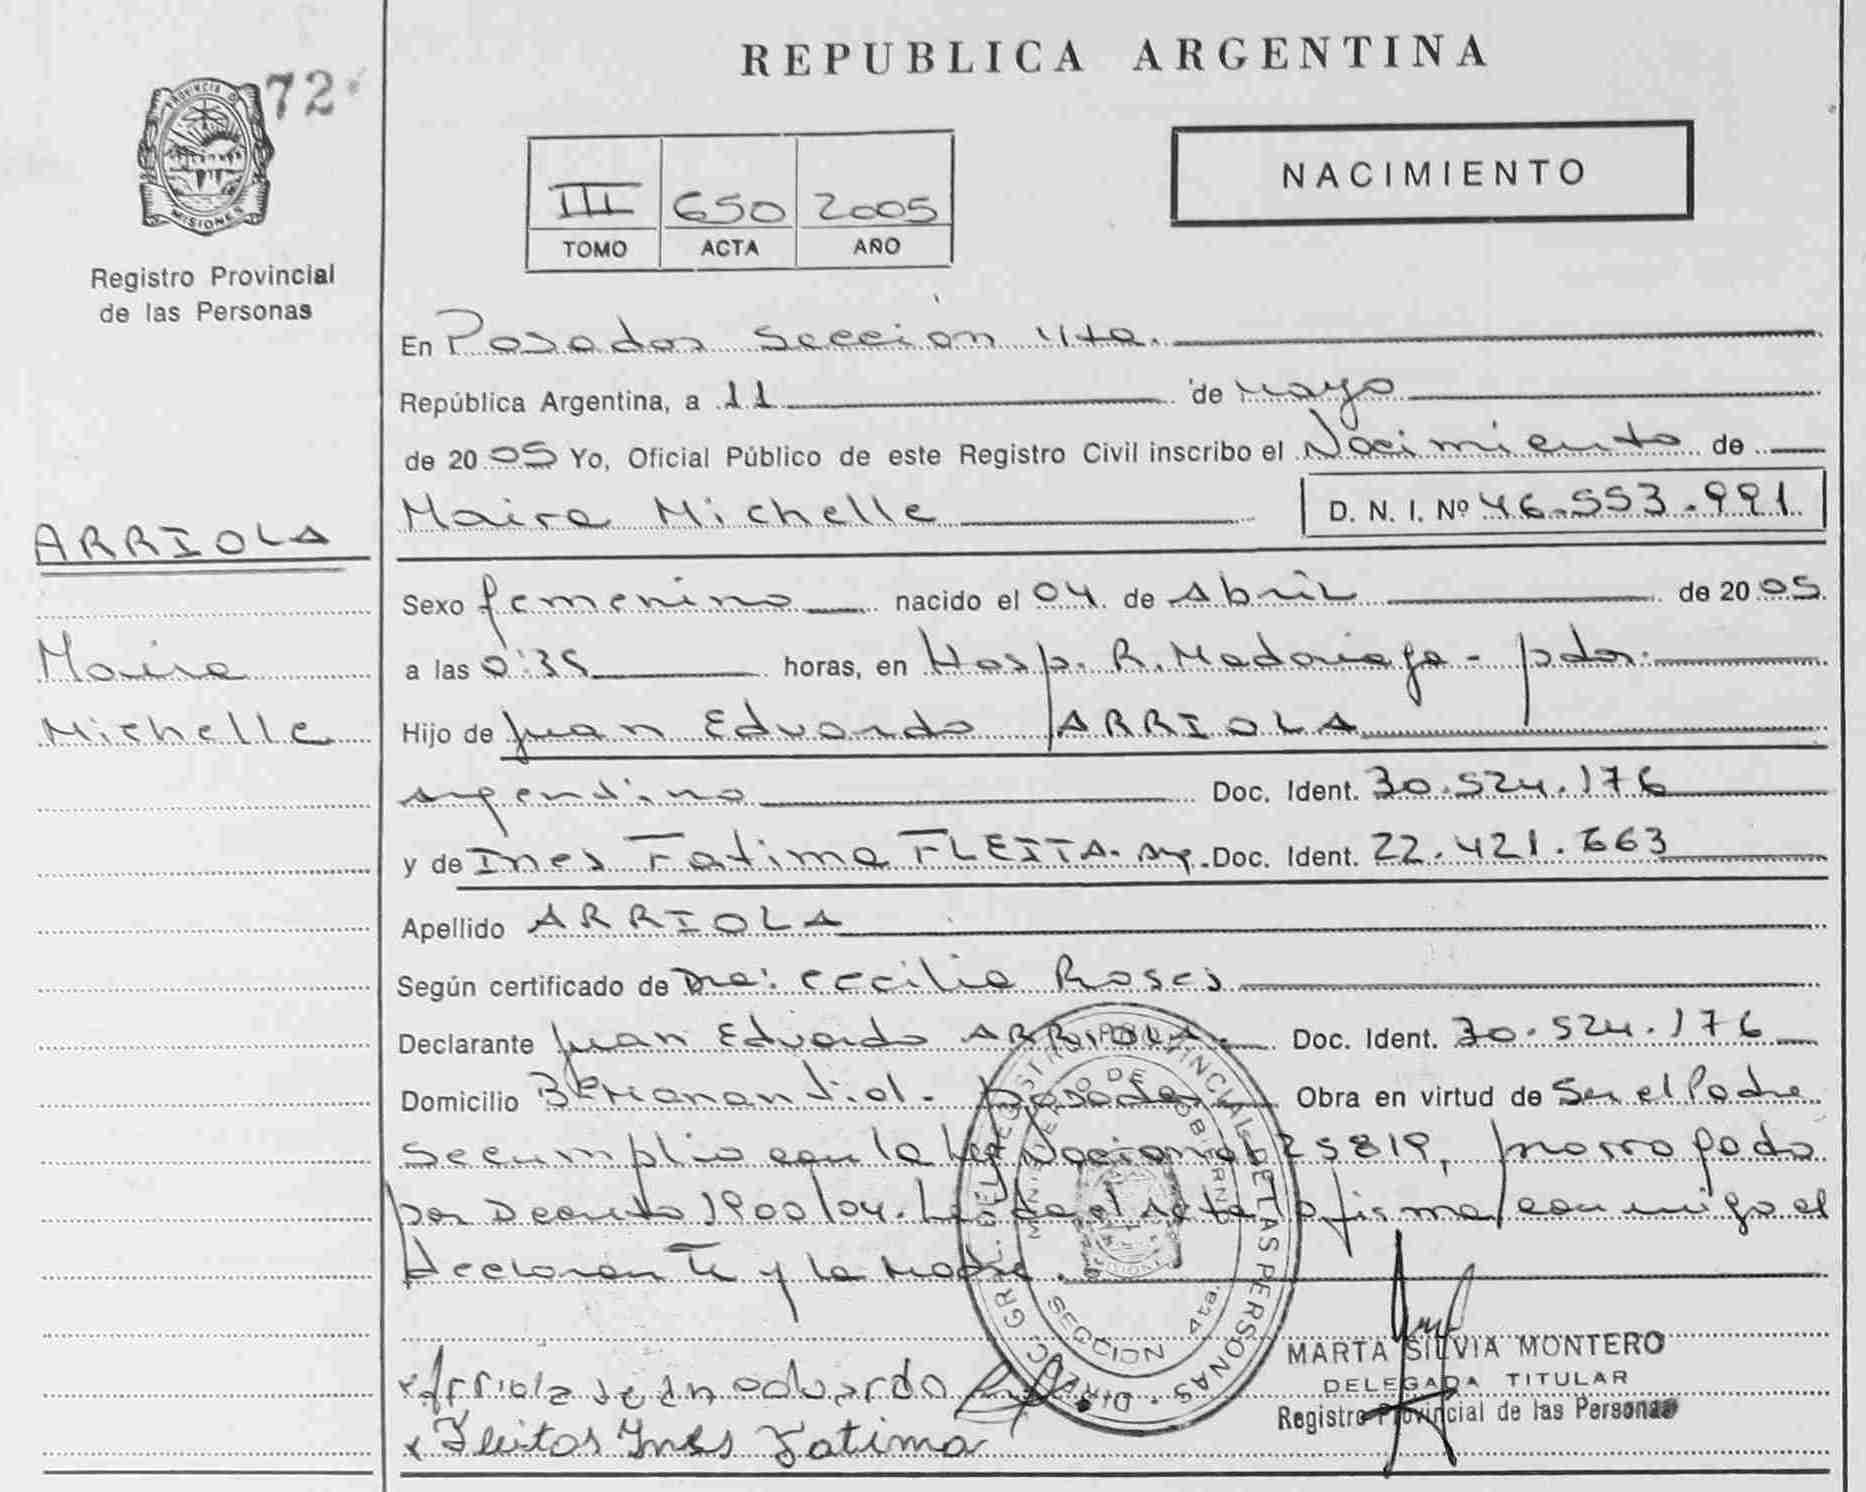 REPUBLICA ARGENTINA
72
PROVINCIA DE
MISIONES
Registro Provincial
de las Personas
NACIMIENTO
III 650 2005
TOMO ACTA AÑO
En Posadas Sección 4ta.
República Argentina, a 11 de Mayo
de 2005 Yo, Oficial Público de este Registro Civil inscribo el Nacimiento de
Maira Michelle D. N. I. Nº 46.553.991
ARRIOLA
Maira
Michelle
Sexo femenino nacido el 04 de Abril de 2005
a las 0:35 horas, en Hosp. R. Madariaga - pdas.
Hijo de Juan Eduardo ARRIOLA
argentino Doc. Ident. 30.524.176
y de Ines Fatima FLEITA. arg. Doc. Ident. 22.421.663
Apellido ARRIOLA
Según certificado de Dra: Cecilia Roses
Declarante Juan Eduardo ARRIOLA. Doc. Ident. 30.524.176
Domicilio Bº Manantial. Posadas Obra en virtud de Ser el Padre
Se cumplio con la Ley Nacional 25819, prorrogada
por Decreto 1900/04. Leida el acta la firma conmigo el
declarante y la Madre.
DIRECC. GRAL. DEL REGISTRO PROVINCIAL DE LAS PERSONAS
MINISTERIO DE GOBIERNO
SECCION 4ta.
x Arriola Juan eduardo
x Fleitas Ines Fatima
MARTA SILVIA MONTERO
DELEGADA TITULAR
Registro Provincial de las Personas